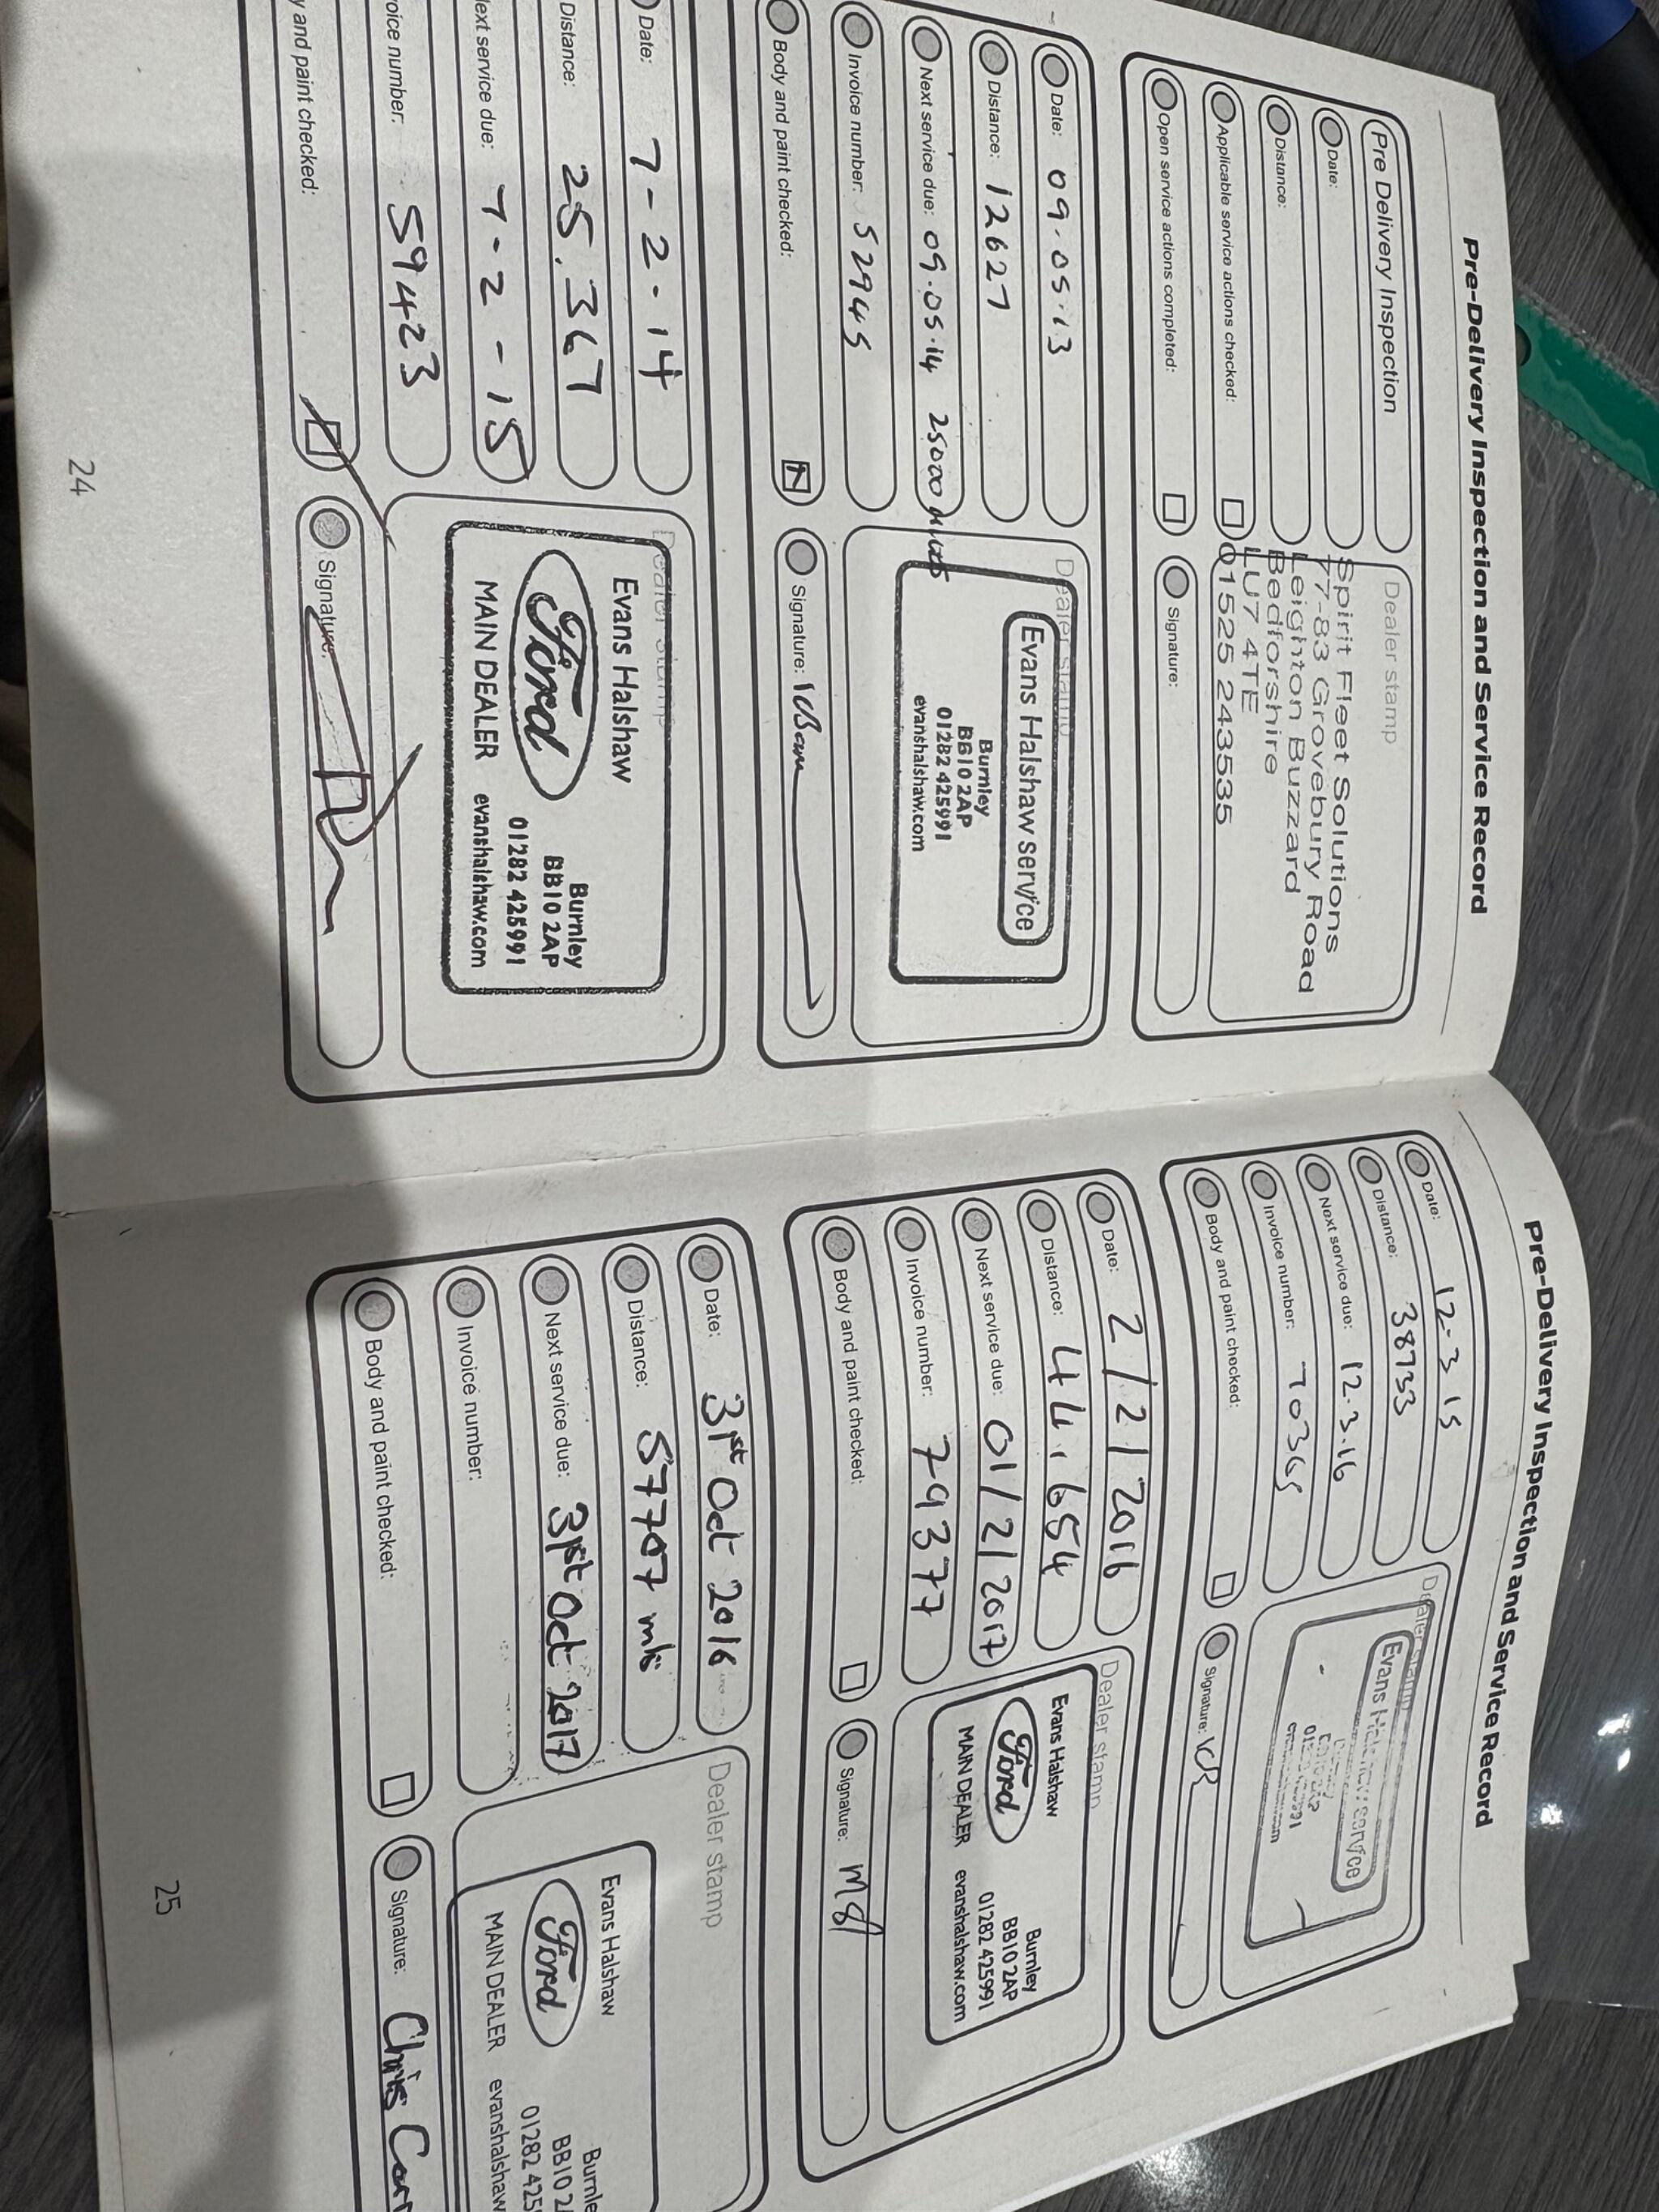 Pre-Delivery Inspection and Service Record
Pre Delivery Inspection
Date:
Distance:
Applicable service actions checked:
Open service actions completed:
Dealer stamp
Spirit Fleet Solutions
77-83 Grovebury Road
Leighton Buzzard
Bedforshire
LU7 4TE
01525 243535
Signature:
Date: 09.05.13
Distance: 12627
Next service due: 09.05.14 25000
Invoice number: 52945
Body and paint checked:
Dealer stamp
Evans Halshaw service
Burnley
BB10 2AP
01282 425991
evanshalshaw.com
Signature:
Date: 7-2-14
Distance: 25,367
ext service due: 7-2-15
oice number: 59423
y and paint checked:
Dealer stamp
Evans Halshaw
Ford
MAIN DEALER
Burnley
BB10 2AP
01282 425991
evanshalshaw.com
Signature:
24
Pre-Delivery Inspection and Service Record
Date: 12-3 15
Distance: 38733
Next service due: 12.3.16
Invoice number: 70365
Body and paint checked:
Dealer stamp
Evans Halshaw service
Signature:
Date: 2/2/2016
Distance: 44,654
Next service due: 01/2/2017
Invoice number: 79377
Body and paint checked:
Dealer stamp
Evans Halshaw
Ford
MAIN DEALER
Burnley
BB10 2AP
01282 425991
evanshalshaw.com
Signature:
Date: 31st Oct 2016
Distance: 57707 mls
Next service due: 31st Oct 2017
Invoice number:
Body and paint checked:
Dealer stamp
Evans Halshaw
Ford
MAIN DEALER
Burnle
BB10 2
01282 425
evanshalshaw
Signature: Chris
25